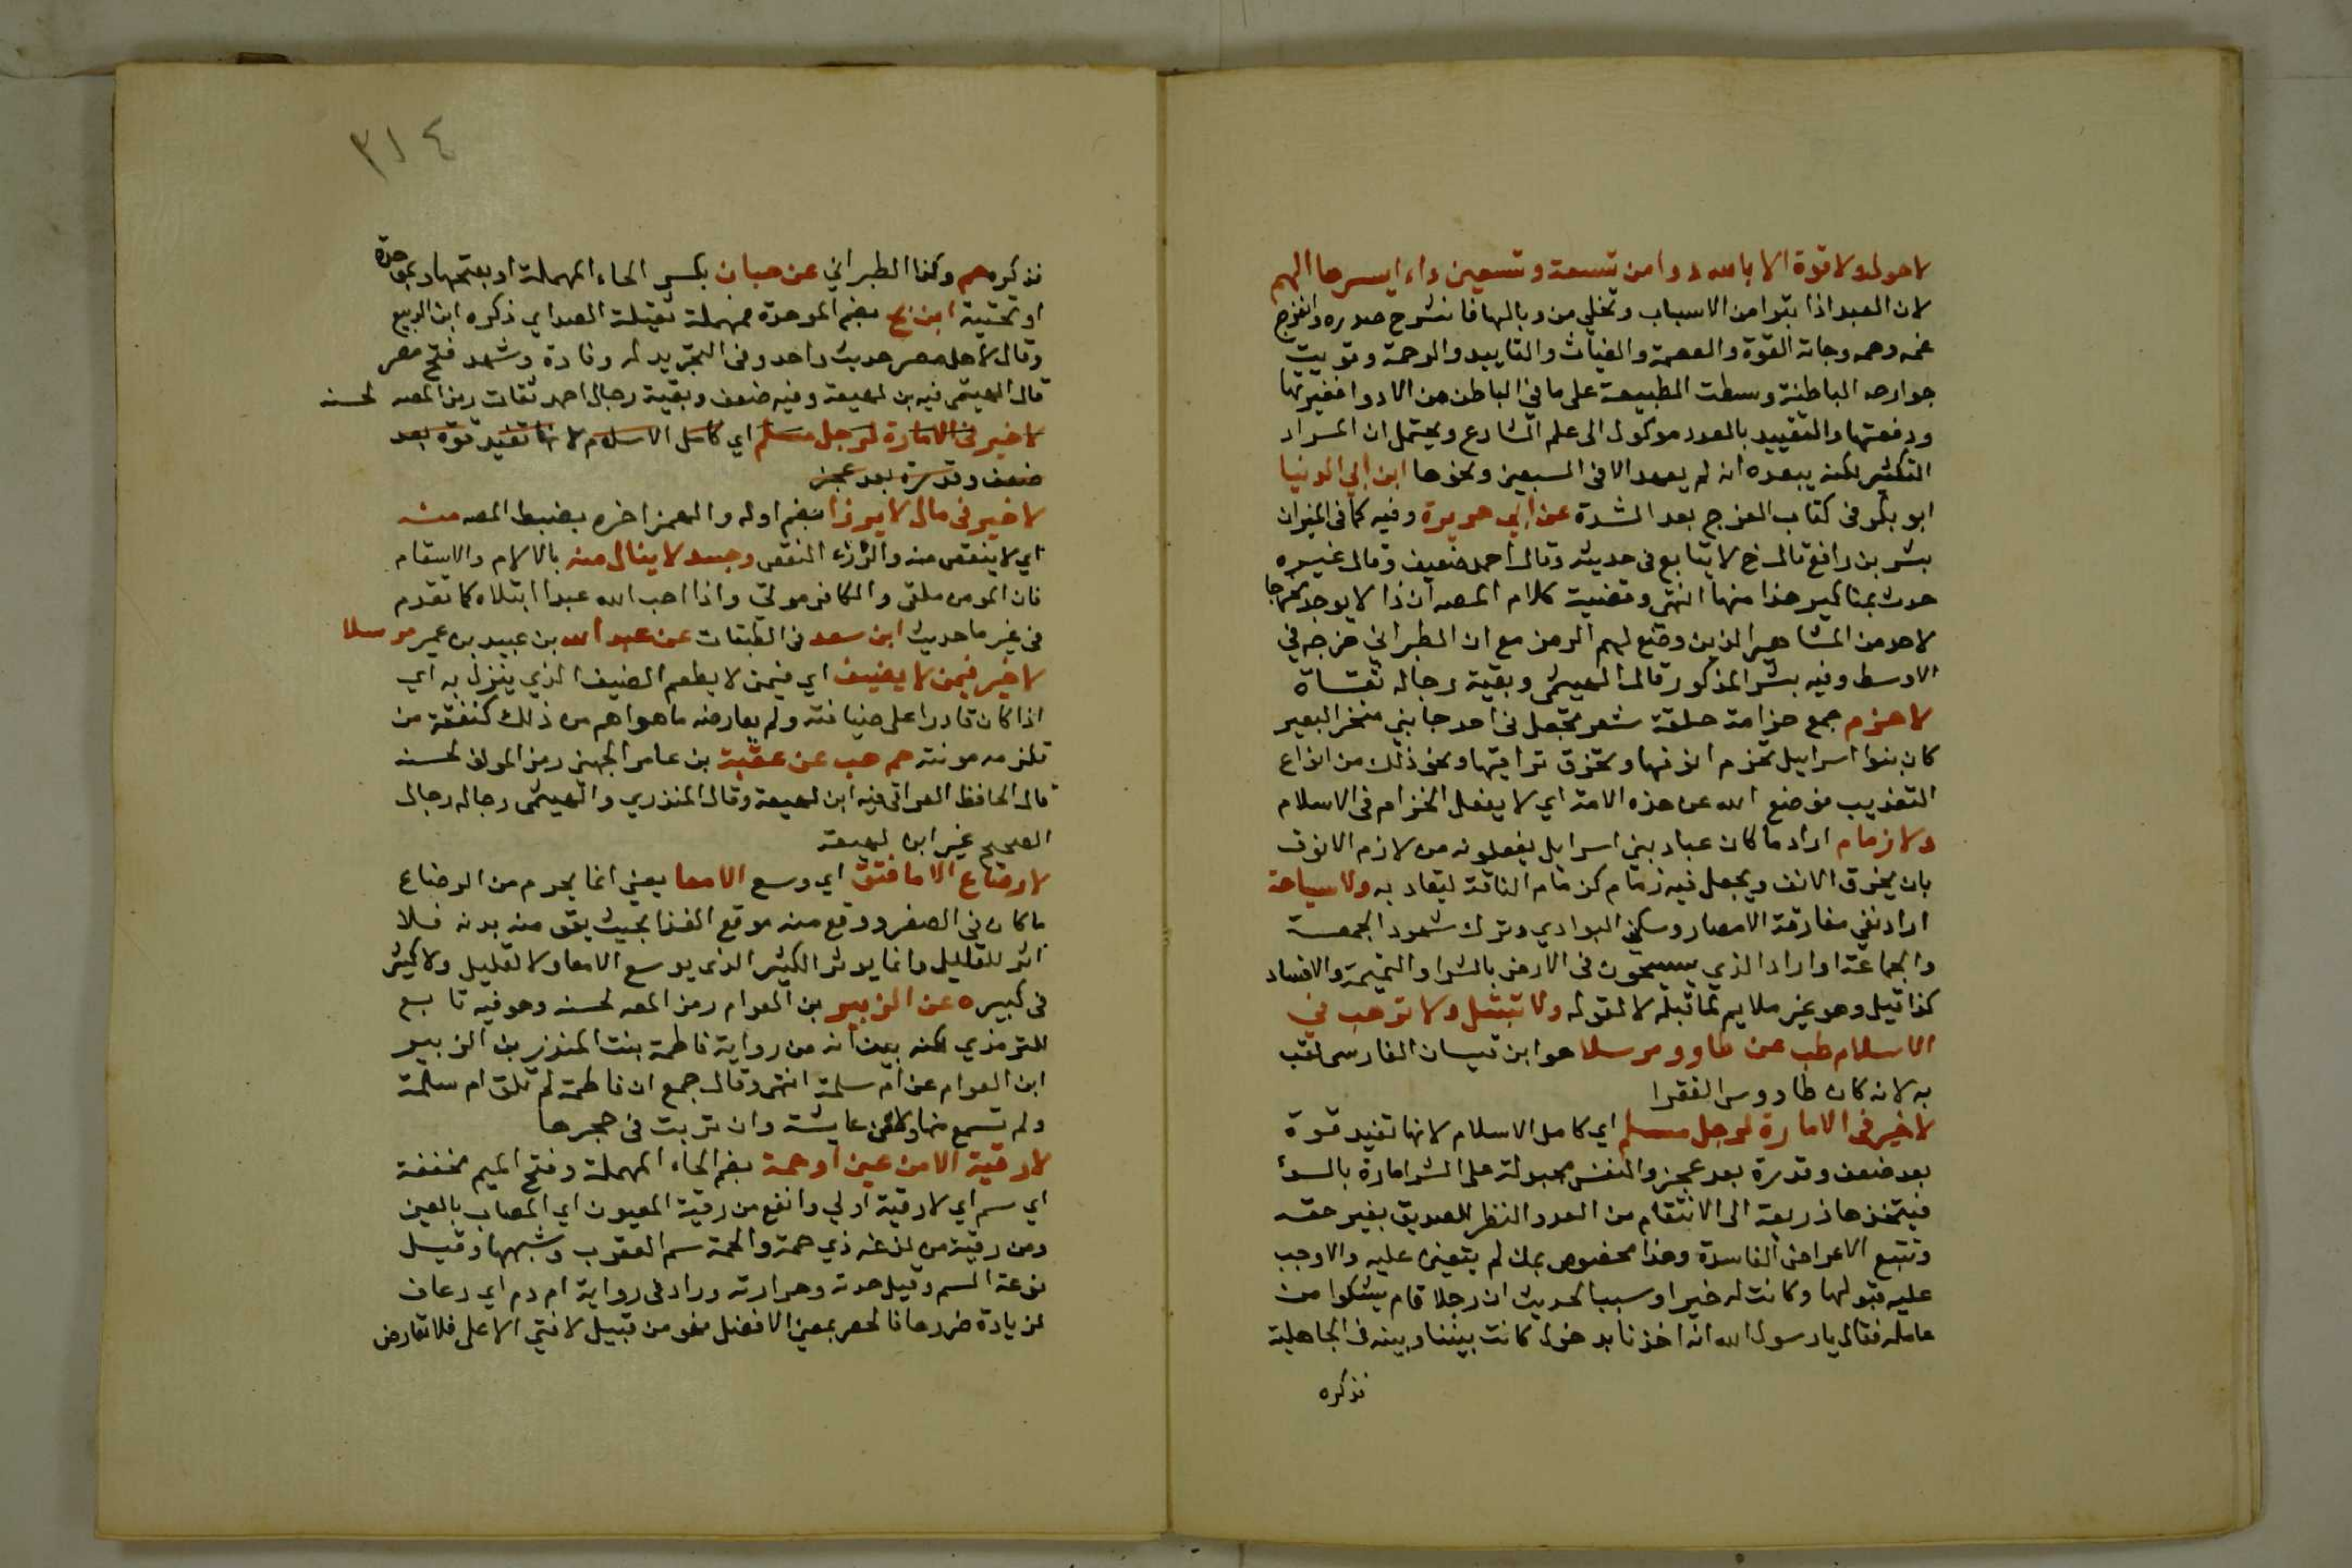 لا حول ولا قوة الا بالله دوا من تسعة وتسعين داء ايسرها الهم
لان العبد اذا تبرا من الاسباب وتخلي من وبالها فانشرح صدره وانفرج
غمه وهمه وجاته القوة والعصمة والغياث والتاييد والرحمة وقويت
جوارحه الباطنة وسطت الطبيعة على ما في الباطن من الادوا فغيرتها
ودفعتها والتقييد بالعدد موكول الى علم الشارع ويحتمل ان المراد
التكثير لكنه يبعده انه لم يعهد الا في السبعين ونحوها ابن ابي الدنيا
ابو بكر في كتاب الفرج بعد الشدة عن ابي هريرة وفيه كما في الميزان
بشر بن رافع قال خ لا يتابع في حديثه وقال احمد ضعيف وقال غيره
حدث بمناكير هذا منها انتهى وقضية كلام المصه ان ذا لا يوجد مخرجا
لاحد من المشاهير الذين وضع لهم الرمز مع ان الطبراني خرجه في
الاوسط وفيه بشر المذكور قال الهيثمى وبقية رجاله ثقاة
لا خزم جمع خزامة حلقة شعر تجعل في احد جابني منخر البعير
كان بنوا اسراييل تخزم انوفها وتخرق تراقيها ونحو ذلك من انواع
التعذيب فوضع الله عن هذه الامة اي لا يفعل الخزام في الاسلام
ولا زمام اراد ما كان عباد بني اسرايل يفعلونه من لازم الانوف
بان يخرق الانف ويجعل فيه زمام كزمام الناقة ليقاد به ولا سياحة
اراد نفي مفارقة الامصار وسكني البوادي وترك شهود الجمعة
والجماعة او اراد الذي يسيحون في الارض بالشر والنميمة والافساد
كذا قيل وهو غير ملايم لما قبله لا لقوله ولا تبتل ولا ترهب في
الاسلام طب عن طاوو مرسلا هو ابن كيسان الفارسي لقب
به لانه كان طاووس الفقرا
لا خير في الامارة لرجل مسلم اي كامل الاسلام لانها تفيد قوة
بعد ضعف وقدرة بعد عجز والنفس مجبولة على الشر امارة بالسوء
فيتخذها ذريعة الى الانتقام من العدو النظر للصديق بغير حقه
وتتبع الاعراض الفاسدة وهذا مخصوص بمن لم يتعين عليه والا وجب
عليه قبولها وكانت له خيرا وسبب الحديث ان رجلا قام يشكوا من
عامله فقال يا رسول الله انه اخذنا بدخول كانت بيننا وبينه في الجاهلية
نذكره
٣١٤
نذكره حم وكذا الطبراني عن حبان بكسر الحاء المهملة او بفتحها وبموحدة
او تحتية ابن بح بضم الموحدة فمهملة ثقيلة الصداي ذكره ابن الربيع
وقال لاهل مصر حديث واحد وفي التجريد له وفادة وشهد فتح مصر
قال الهيثمى فيه بن لهيعة وفيه ضعف وبقية رجال احمد ثقات رمز المصه لحسنه
لا خير في الامارة لرجل مسلم اي كامل الاسلام لانها تفيد قوة بعد
ضعف وقدرة بعد عجز
لا خير في مال لا يرزا بضم اوله والهمز اخره بضبط المصه منه
اي لا ينقص منه والرزء النقص وجسد لا ينال منه بالالام والاسقام
فان المومن ملقى والكافر موقى واذا احب الله عبدا ابتلاه كما تقدم
في غير ما حديث ابن سعد في الطبقات عن عبد الله بن عبيد بن عمير مرسلا
لا خير فيمن لا يضيف اي فيمن لا يطعم الضيف الذي ينزل به اي
اذا كان قادرا على ضيافته ولم يعارضه ما هو اهم من ذلك كنفقة من
تلزمه مونته حم هب عن عقبة بن عامر الجهني رمز المولف لحسنه
قال الحافظ العراقي فيه ابن لهيعة وقال المنذري والهيثمى رجاله رجال
الصحيح غير ابن لهيعة
لا رضاع الا ما فتق اي وسع الامعا يعني انما يحرم من الرضاع
ما كان في الصغر ووقع منه موقع الغذا بحيث يقو منه بدنه فلا
اثر للقليل وانما يوثر الكثير الذى يوسع الامعا ولا لقليل ولا كثير
في كبيره عن الزبير بن العوام رمز المصه لحسنه وهو فيه تابع
للترمذي لكنه بين انه من رواية فاطمة بنت المنذر بن الزبير
ابن العوام عن ام سلمة انتهى وقال جمع ان فاطمة لم تلق ام سلمة
ولم تسمع منها ولا من عايشة وان تربت في حجرها
لا رقية الا من عين او حمة بضم الحاء المهملة وفتح الميم مخففة
اي سم اي لا رقية اولي وانفع من رقية المعيون اي المصاب بالعين
ومن رقية من لدغه ذي حمة والحمة سم العقرب وشبهها وقيل
نوعة السم وقيل حدته وحرارته وزاد في رواية او دم اي رعاف
لزيادة ضررها فالحصر بمعني الافضل فهو من قبيل لا فتي الا على فلا تعارض